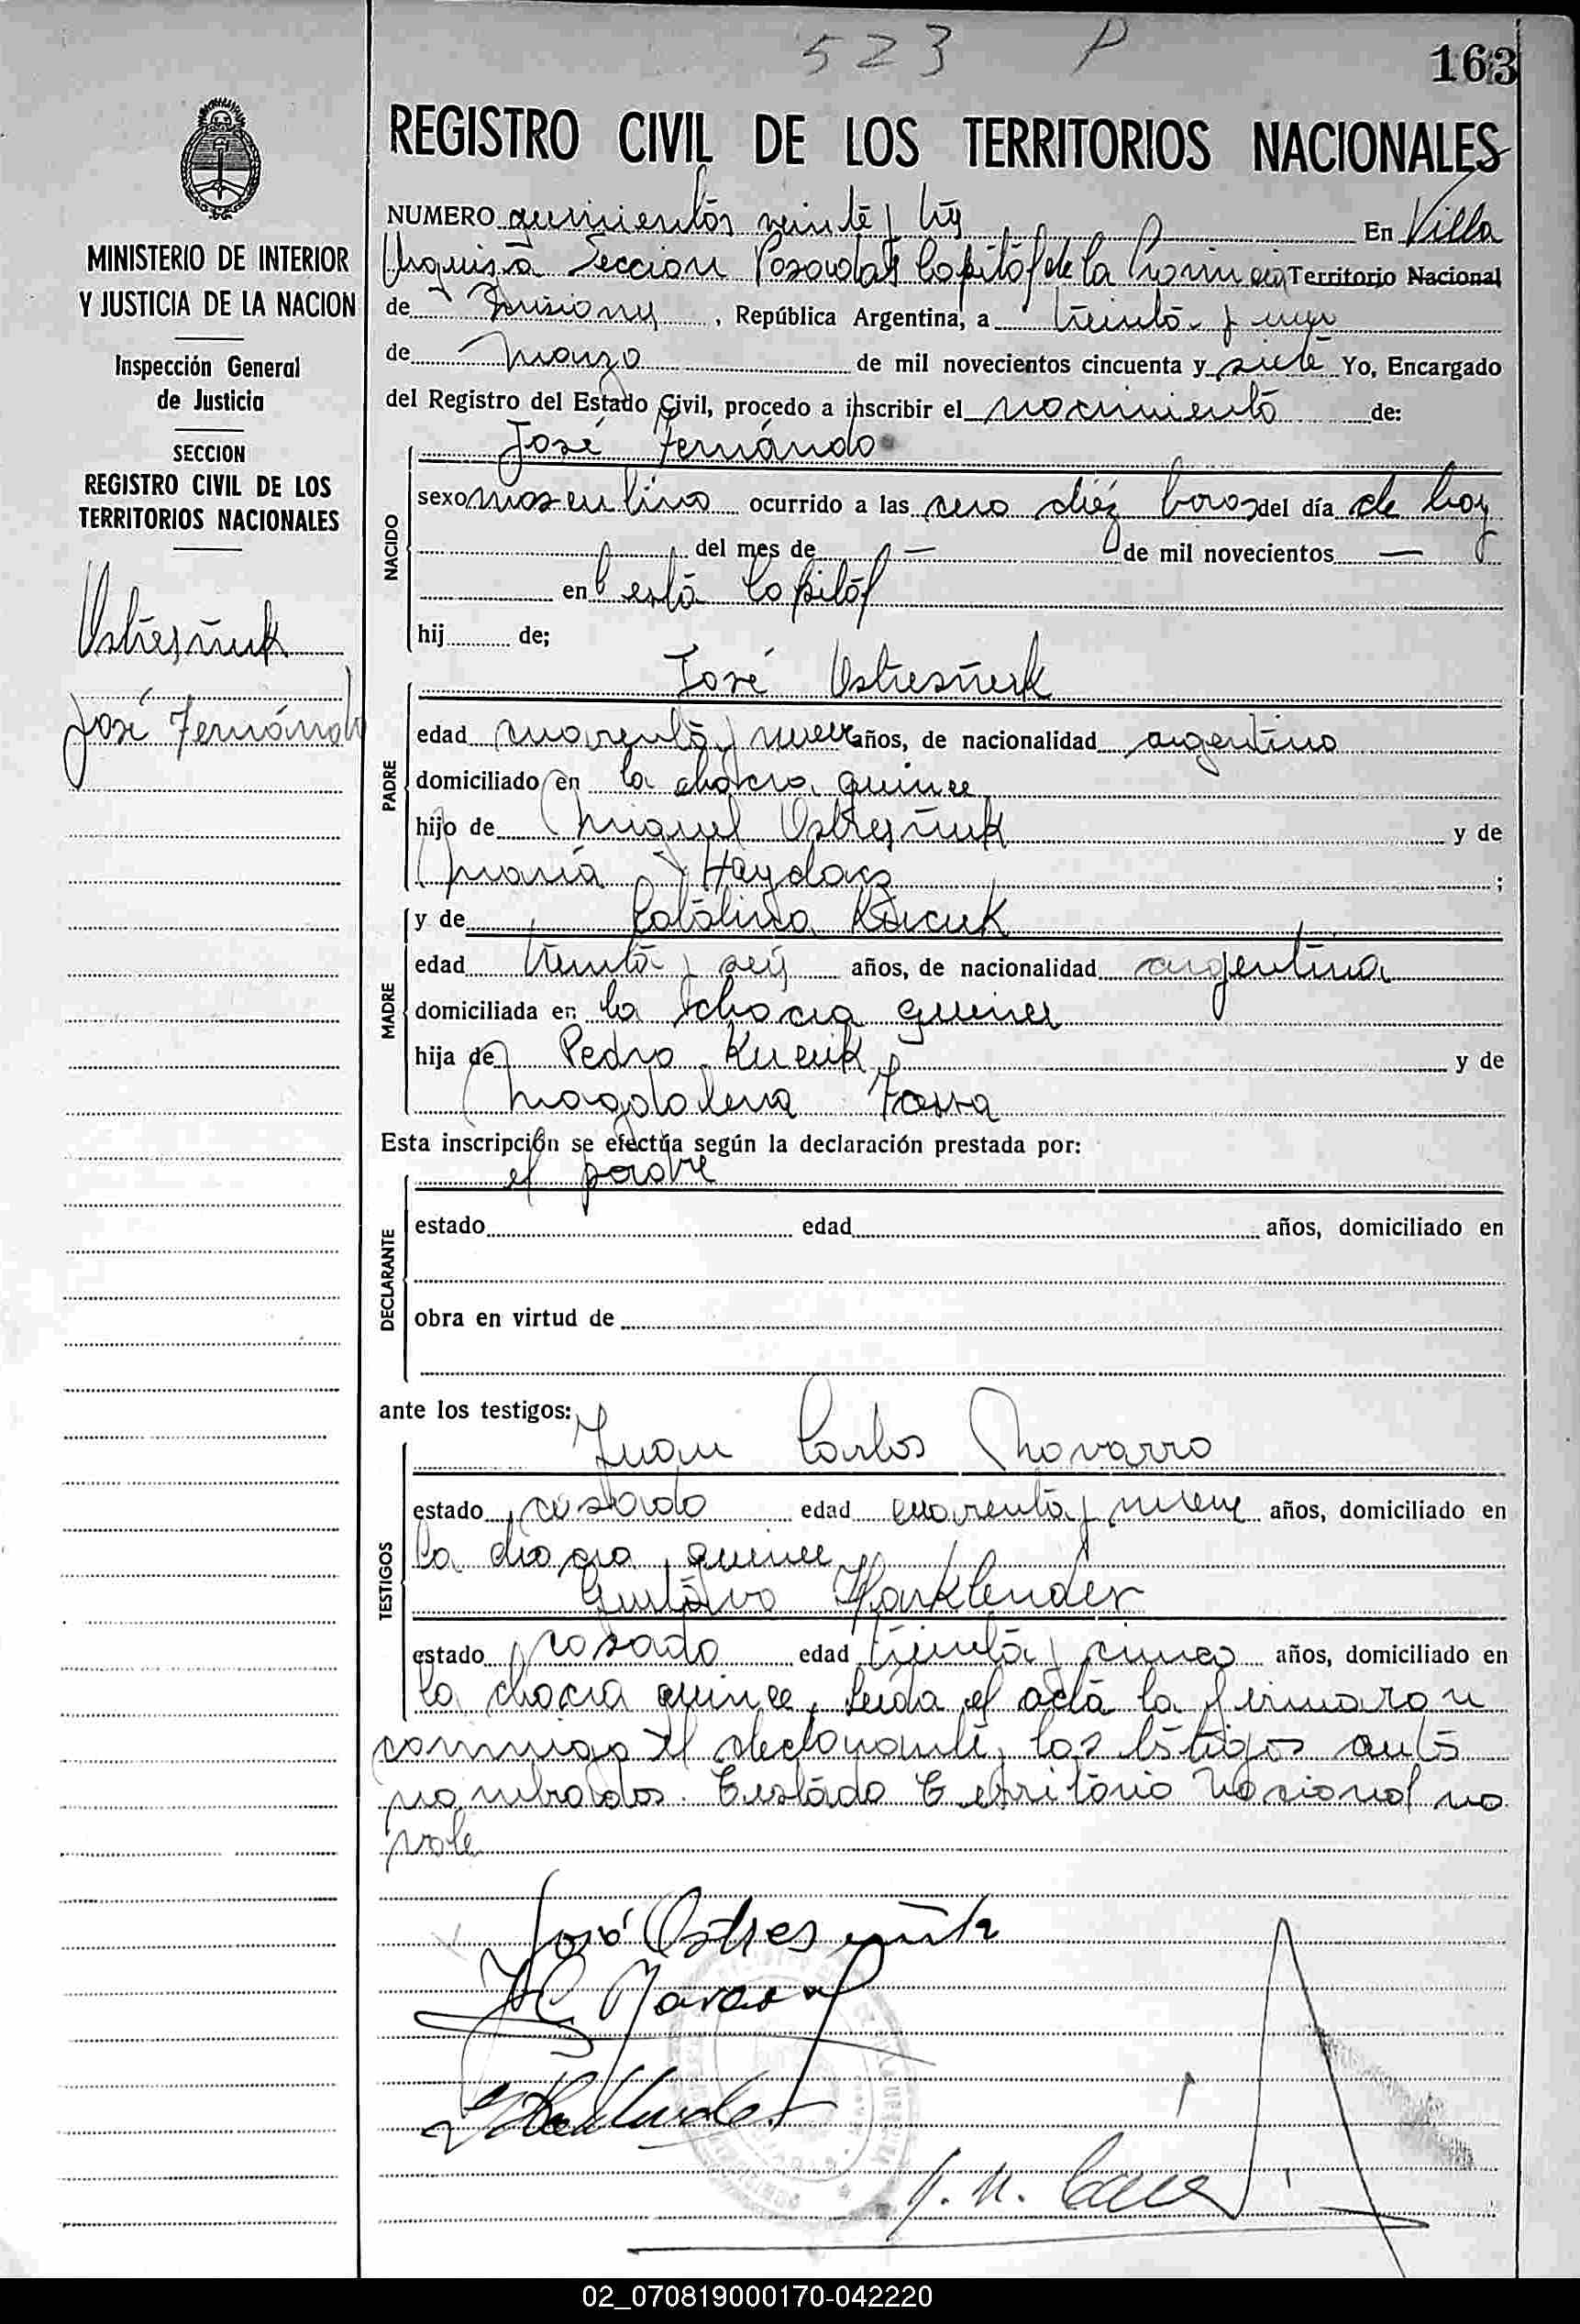 523 P
163
REGISTRO CIVIL DE LOS TERRITORIOS NACIONALES
MINISTERIO DE INTERIOR
Y JUSTICIA DE LA NACION
Inspección General
de Justicia
SECCION
REGISTRO CIVIL DE LOS
TERRITORIOS NACIONALES
Ostresñuk
José Fernándo
NUMERO quinientos veinte y tres En Villa
Urquiza Seccion Posadas Capital de la Provincia Territorio Nacional
de Misiones, República Argentina, a treinta y uno
de Marzo de mil novecientos cincuenta y siete Yo, Encargado
del Registro del Estado Civil, procedo a inscribir el nacimiento de:
NACIDO
José Fernándo
sexo masculino ocurrido a las cero diéz horas del día de hoy
del mes de — de mil novecientos —
en esta Capital
hij de;
PADRE
José Ostresñuk
edad cuarenta y nueve años, de nacionalidad argentino
domiciliado en la chacra quince
hijo de Miguel Ostresñuk y de
María Haydasz;
MADRE
y de Catalina Kucuk
edad treinta y seis años, de nacionalidad argentina
domiciliada en la chacra quince
hija de Pedro Kucuk y de
Magdalena
Esta inscripción se efectúa según la declaración prestada por:
DECLARANTE
el padre
estado edad años, domiciliado en
obra en virtud de
ante los testigos:
TESTIGOS
Juan Carlos Navarro
estado casado edad cuarenta y nueve años, domiciliado en
la chacra quince
Gustavo Harklender
estado casado edad treinta y cinco años, domiciliado en
la chacra quince, leida el acta la firmaron
conmigo el declarante y los testigos ante
nombrados. Testádo Territorio Nacional no
vale
José Ostresñuk
J C Navarro
02_070819000170-042220